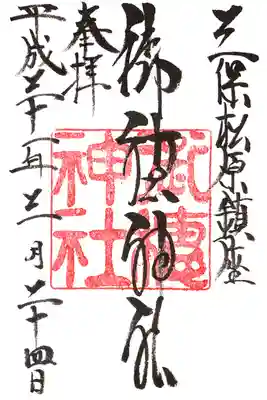 三保松原鎮座
御穂神社
奉拝
平成二十一年 月二十四日
御穂
神社